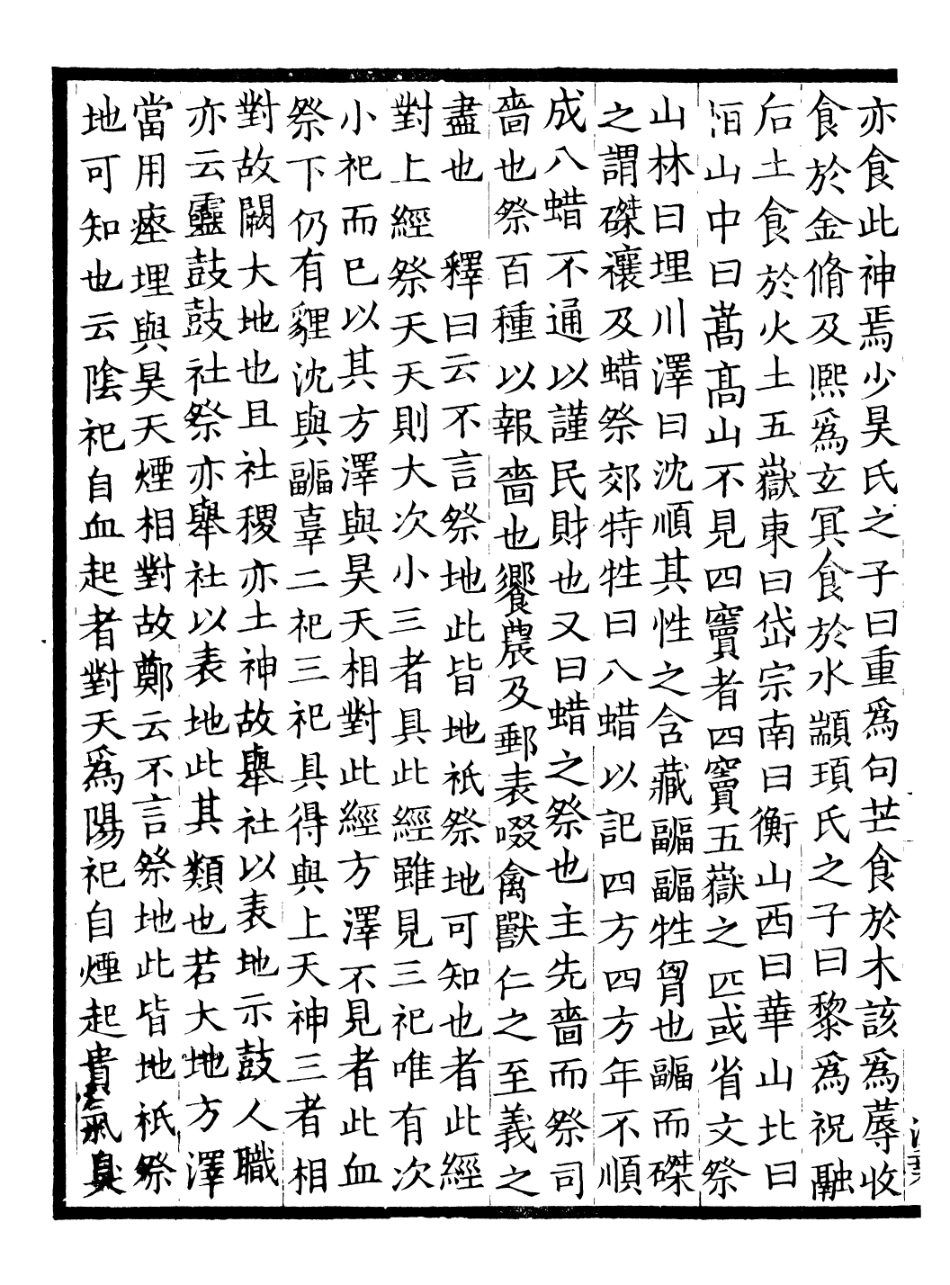 亦食此神焉少昊氏之子曰重爲句芒食於木該爲蓐收
食於金脩及熙爲玄冥食於水顓頊氏之子曰黎爲祝融
后土食於火土五嶽東曰岱宗南曰衡山西曰華山北曰
恒山中曰嵩高山不見四竇者四竇五嶽之匹或省文祭
山林曰埋川澤曰沈順其性之含藏疈疈牲胷也疈而磔
之謂磔禳及蜡祭郊特牲曰八蜡以記四方四方年不順
成八蜡不通以謹民財也又曰蜡之祭也主先嗇而祭司
嗇也祭百種以報嗇也饗農及郵表啜禽獸仁之至義之
盡也　釋曰云不言祭地此皆地祇祭地可知也者此經
對上經祭天天則大次小三者具此經雖見三祀唯有次
小祀而已以其方澤與昊天相對此經方澤不見者此血
祭下仍有貍沈與疈辜二祀三祀具得與上天神三者相
對故闕大地也且社稷亦土神故舉社以表地示鼓人職
亦云靈鼓鼓社祭亦舉社以表地此其類也若大地方澤
當用瘞埋與昊天煙相對故鄭云不言祭地此皆地祇祭
地可知也云陰祀自血起者對天爲陽祀自煙起貴氣臭